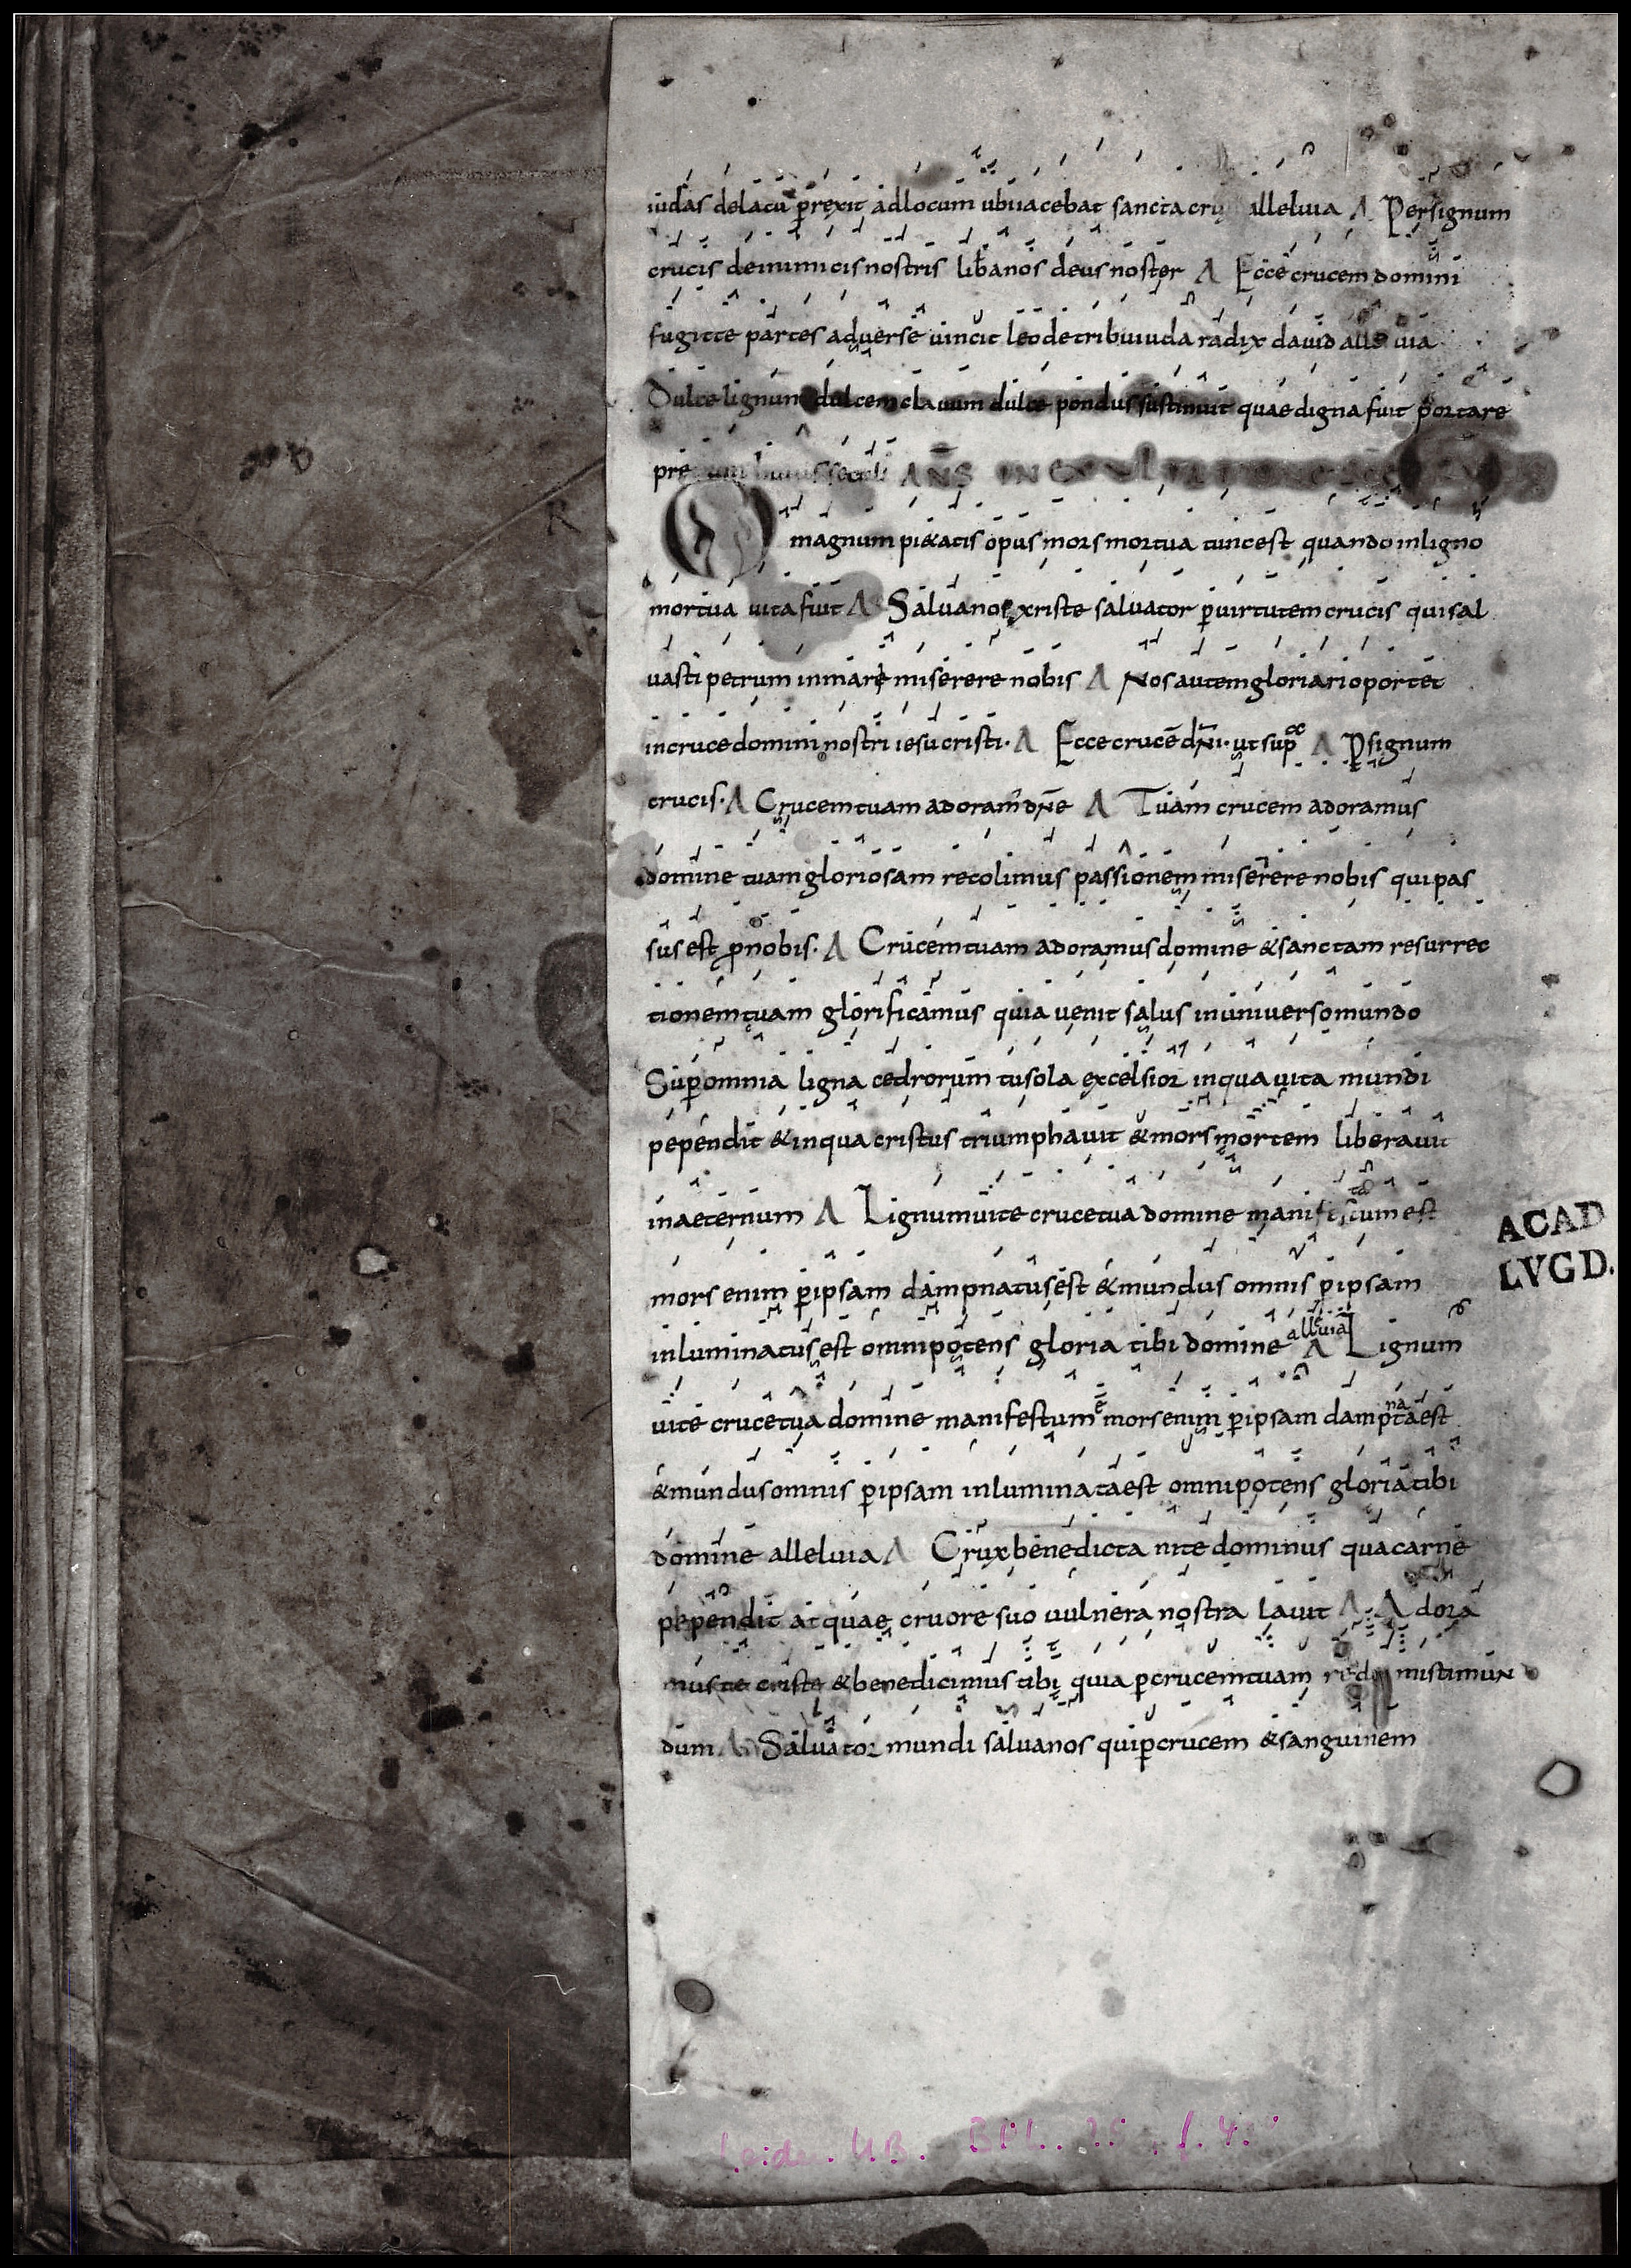 iudas delatū p̄rexit ad locum ubi iacebat sancta cru alleluia A Per signum
crucis de inimicis nostris lib̄a nos deus noster A Ecce crucem domini
fugitte partes adverse vincit leo de tribu iuda radix david
Dulce lignum dulcem clavum dulce pondus sustinuit quae digna fuit portare
huius seculi AÑS IN
O magnum pi&atis opus mors mortua tunc est quando in ligno
mortua vita fuit A Salva nos xriste salvator p̄ virtutem crucis qui sal
vasti petrum in mare miserere nobis A Nos autem gloriari oportet
in cruce domini nostri iesu cristi. A Ecce crucē dn̄i. ut sup̄ A P̄ signum
crucis. A Crucem tuam adoram̄ dn̄e A Tuam crucem adoramus
domine tuam gloriosam recolimus passionem miserere nobis qui pas
sus est pro nobis. A Crucem tuam adoramus domine & sanctam resurrec
tionem tuam glorificamus quia venit salus in universo mundo
Sup̄ omnia ligna cedrorum tu sola excelsior in qua vita mundi
pependit & in qua cristus triumphavit & mors mortem liberavit
in aeternum A Lignum vite cruce tua domine manifestum est
mors enim p̄ ipsam dampnatus est & mundus omnis p̄ ipsam
inluminatus est omnipotens gloria tibi domine all̄uia A Lignum
vite cruce tua domine manifestum ē mors enim p̄ ipsam dampnata est
& mundus omnis p̄ ipsam inluminata est omnipotens gloria tibi
domine alleluia A Crux benedicta nite dominus qua carne
pependit atquae cruore suo vulnera nostra lavit A Adora
mus te criste & benedicimus tibi quia p̄ crucem tuam redemisti mun
dum A Salvator mundi salva nos qui p̄ crucem & sanguinem
ACAD
LVGD.
Leiden. UB. BPL. 25. f. 40